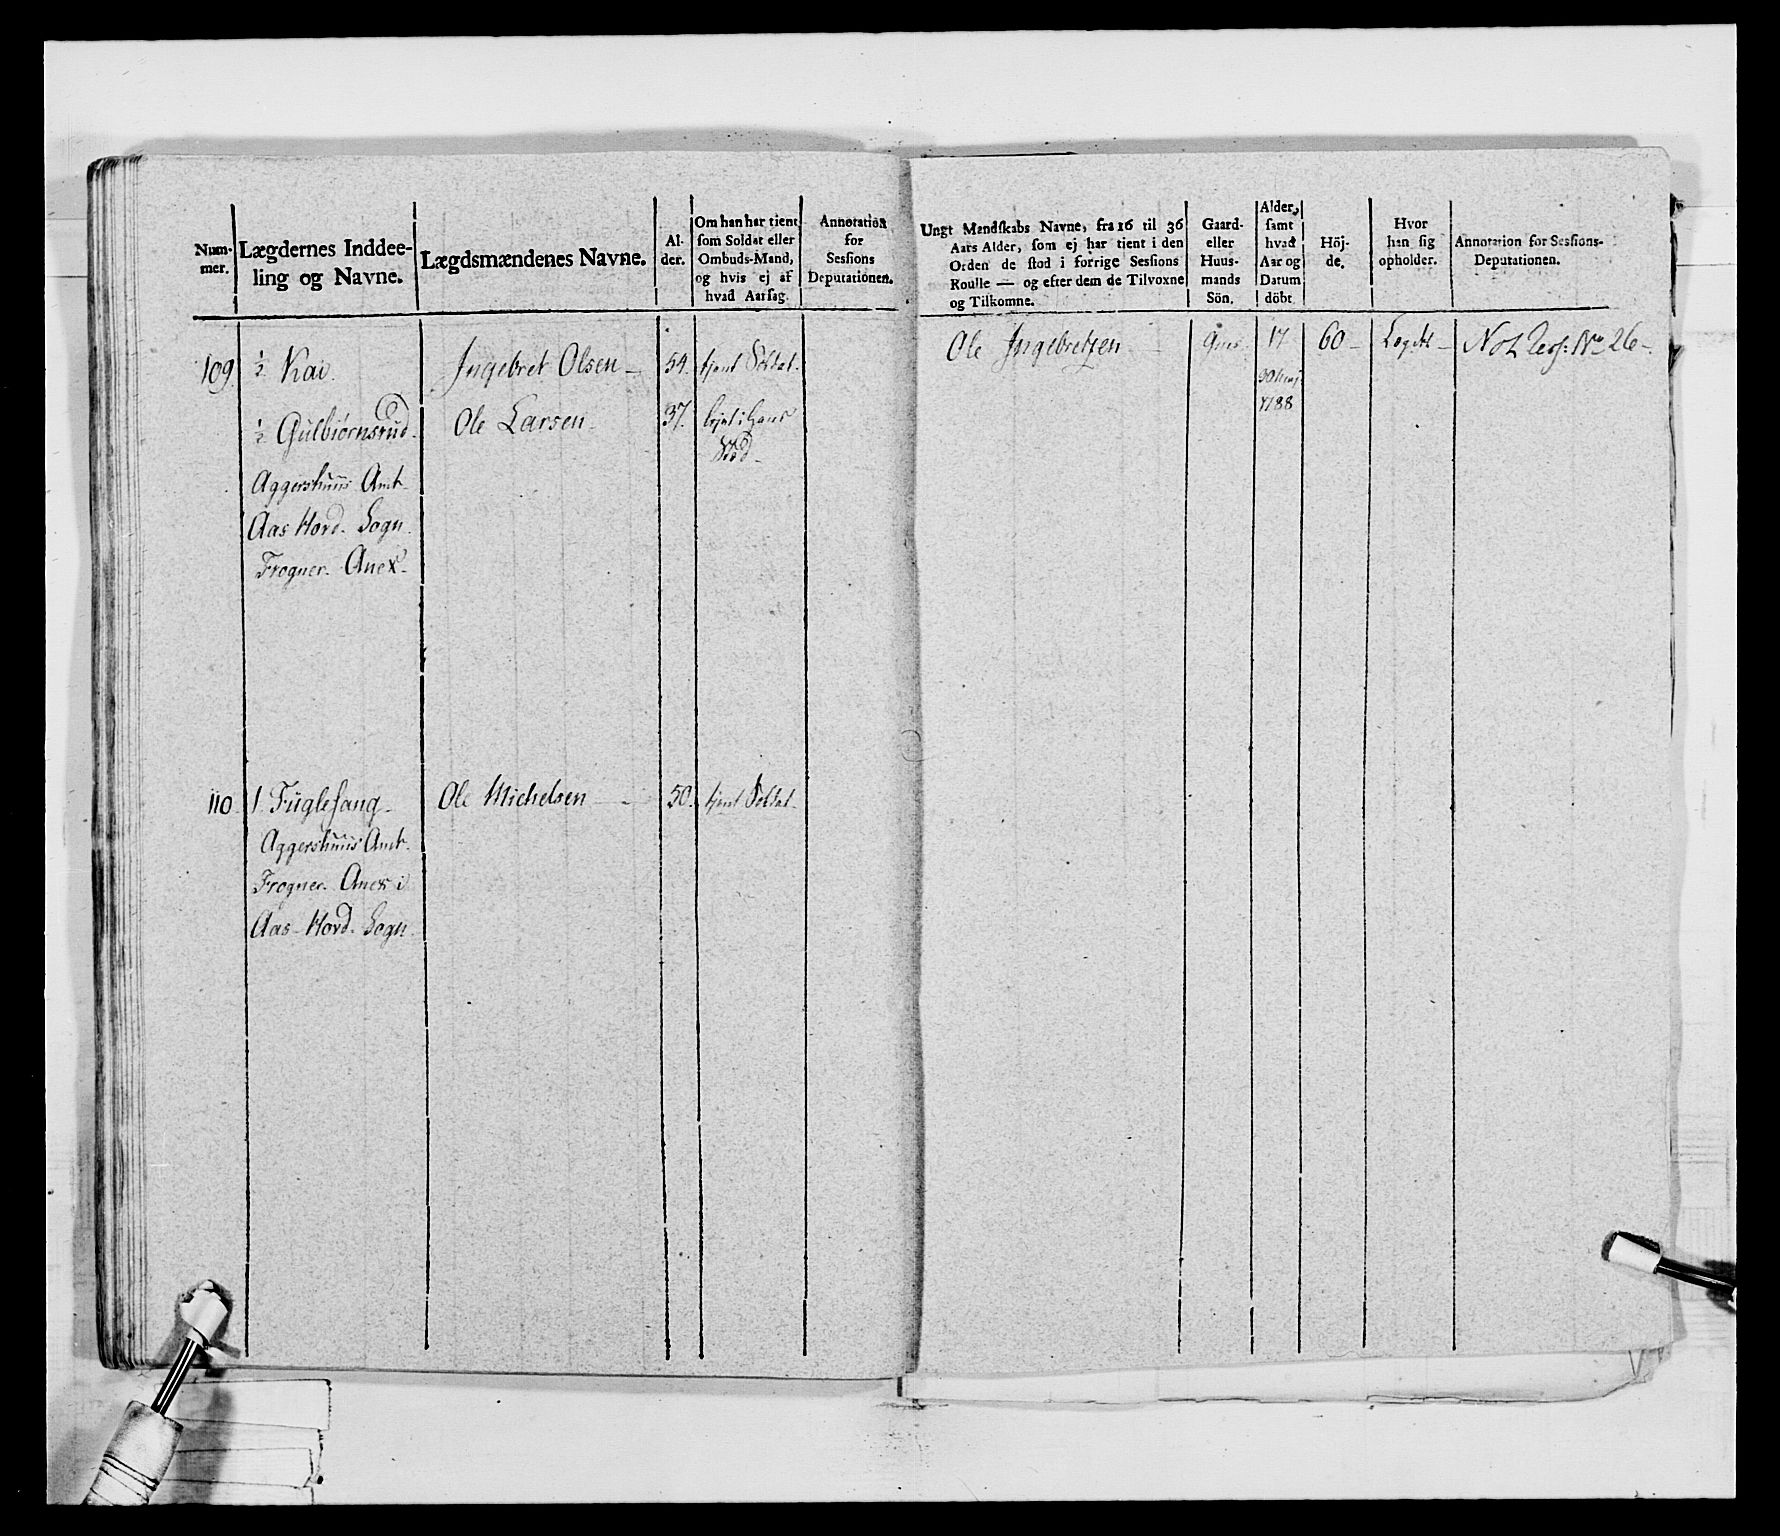 Num-
mer.
Lægdernes Inddee-
ling og Navne.
Lægdsmændenes Navne.
Al-
der.
Om han har tient
som Soldat eller
Ombuds-Mand,
og hvis ej af
hvad Aarsag.
Annotation
for
Sessions
Deputationen.
Ungt Mandskabs Navne, fra 16 til 36
Aars Alder, som ej har tient i den
Orden de stod i forrige Sessions
Roulle — og efter dem de Tilvoxne
og Tilkomne.
Gaard-
eller
Huus-
mands
Sön.
Alder,
samt
hvad
Aar og
Datum
döbt
Höj-
de.
Hvor
han sig
opholder.
Annotation for Sessions-
Deputationen.
109. ½ Kai. Ingebret Olsen 54. tjent Soldat.
½ Gulbiørnsrud. Ole Larsen. 37.
Stød
Aggershuus Amt
Aas Hovd. Sogn.
Frogner. Anex.
Ole Ingebretzen 17 60 Lægdet
1788
No 26
110 1 Fuglefang Ole Michelsen 50. tjent Soldat
Aggershuus Amt.
Frogner. Anex i
Aas Hovd. Sogn.